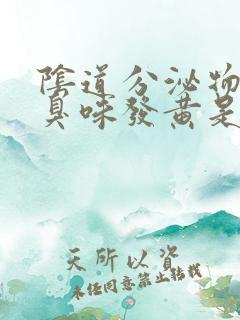 陰道分泌物
臭味發黃是
天所以資
未经同意禁止转载